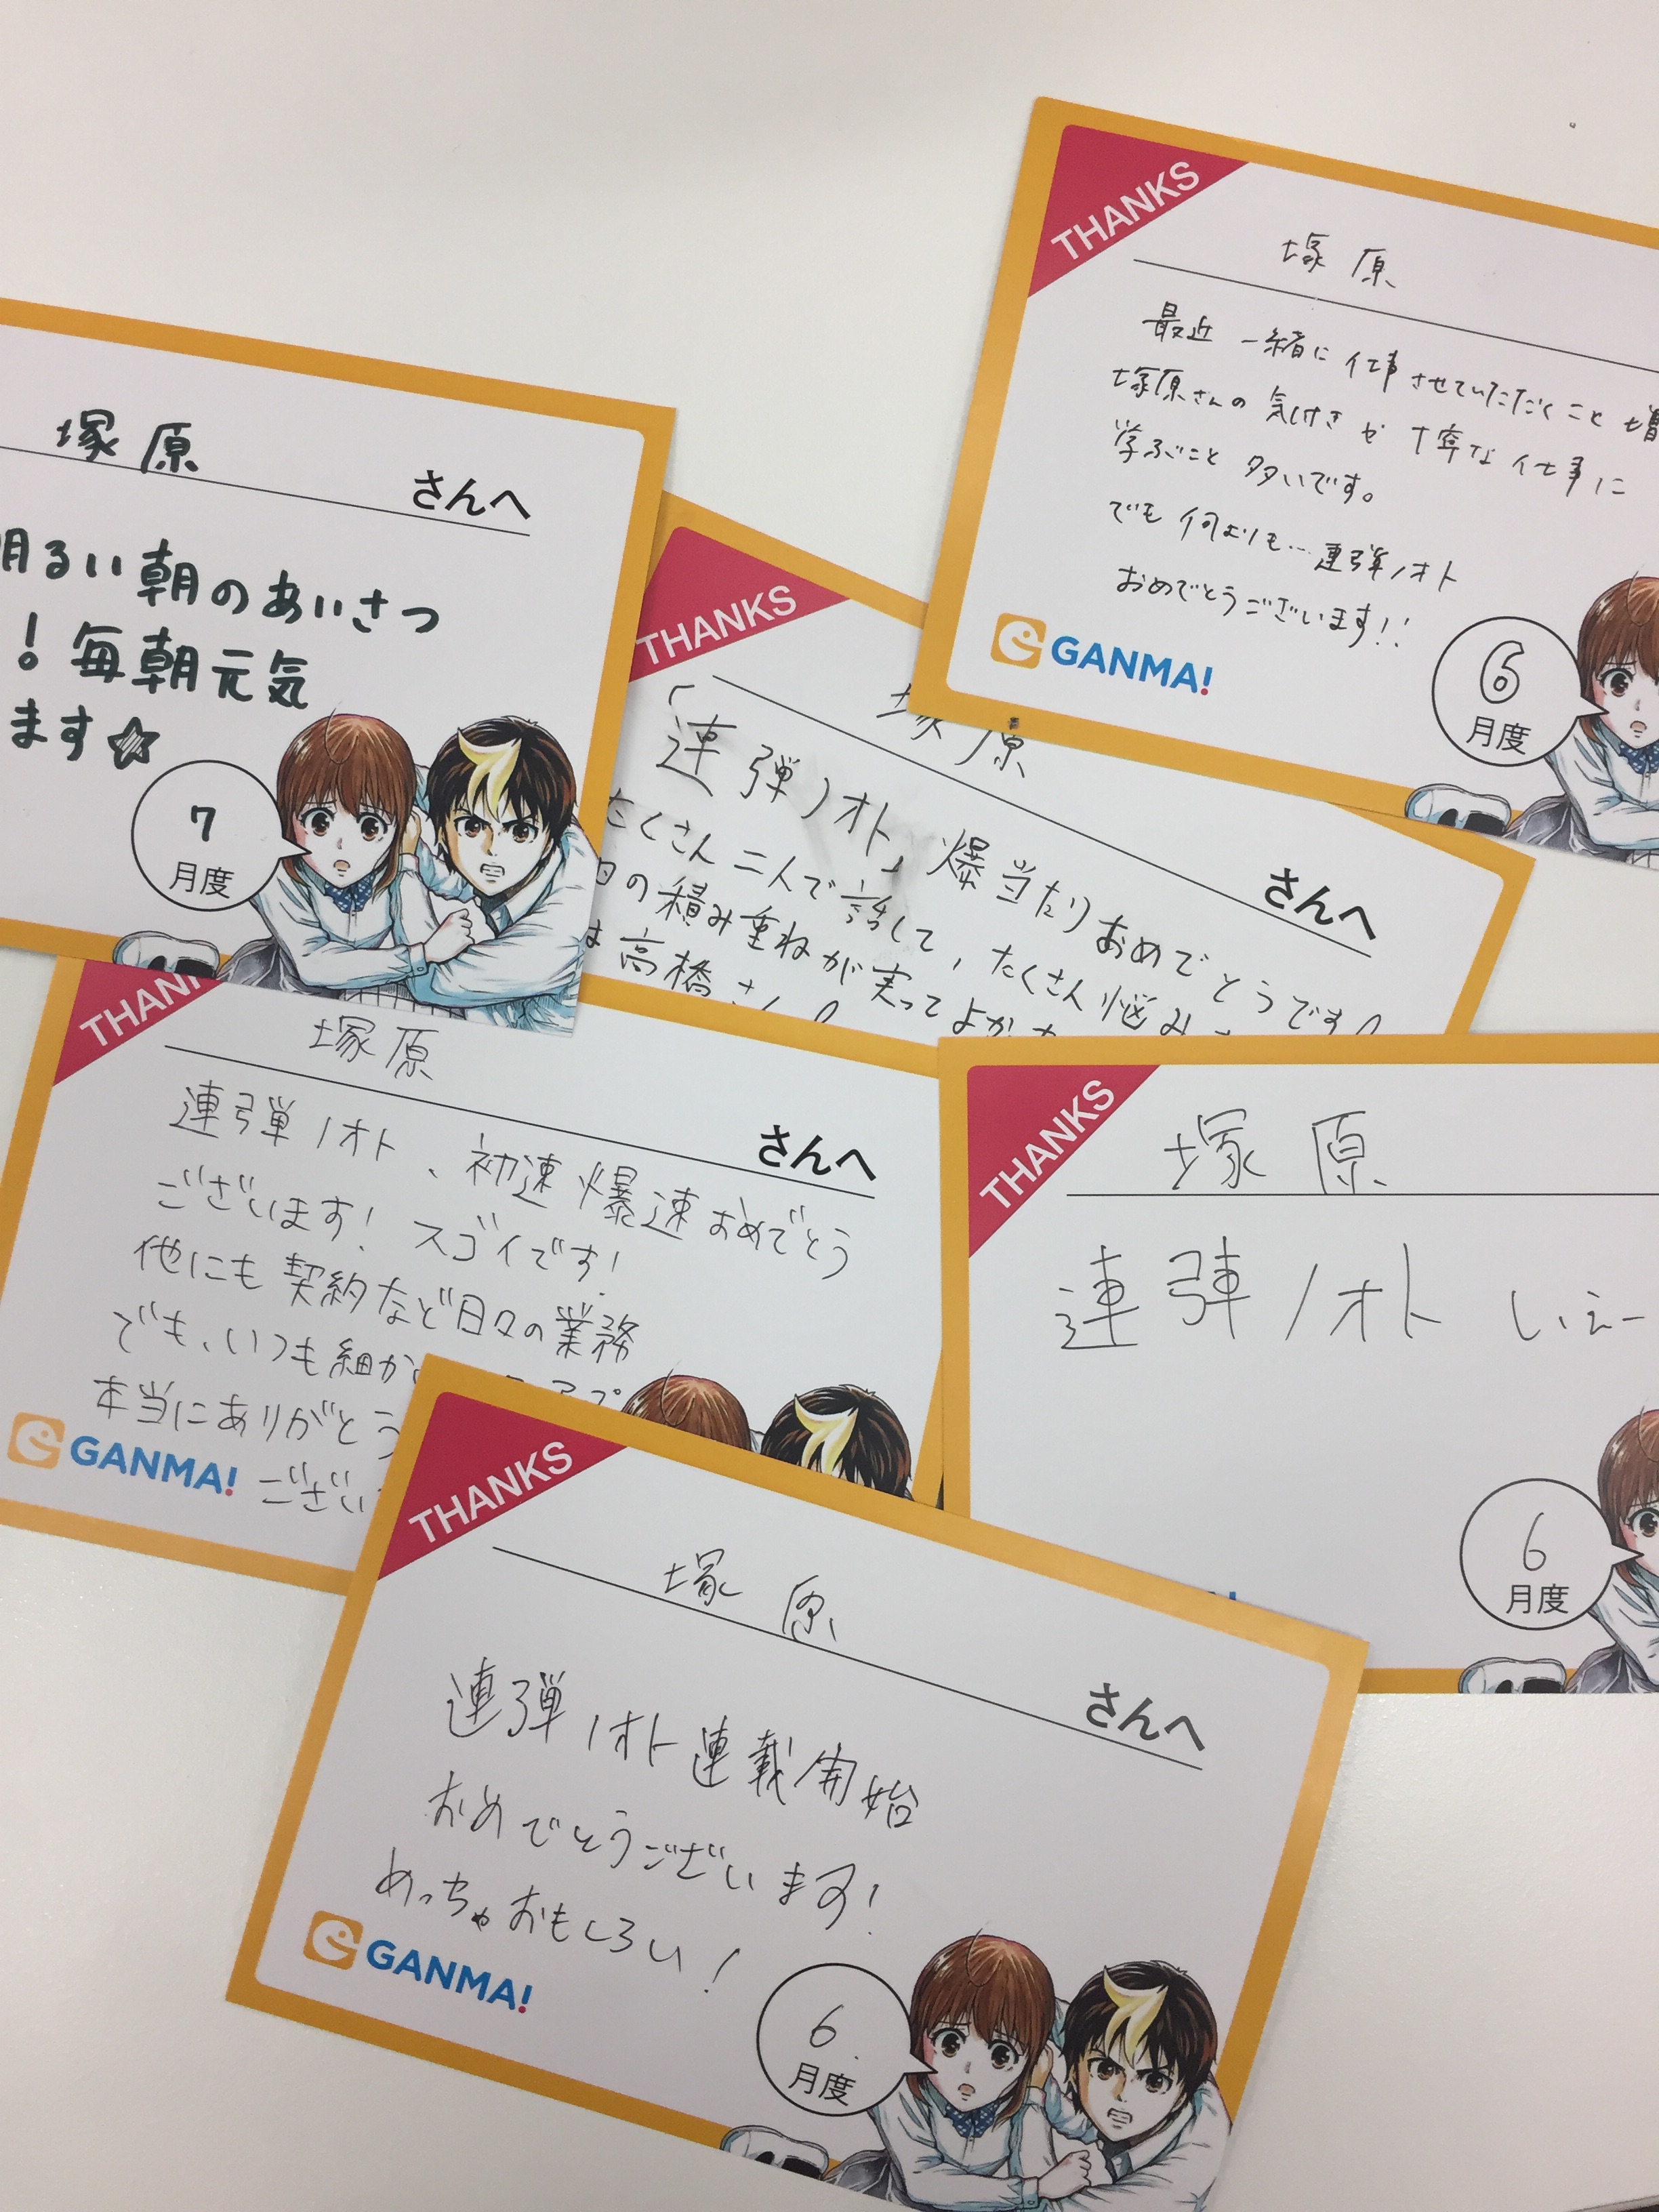 THANKS
塚原
最近 一緒に 仕事 させていただくこと 増
塚原さんの 気付き や 丁寧な 仕事に
学ぶこと 多いです。
でも 何よりも… 連弾ノオト
おめでとうございます!!
GANMA!
6
月度
塚原
さんへ
明るい朝のあいさつ
! 毎朝元気
ます☆
7
月度
THANKS
塚原
さんへ
「連弾ノオト」爆当たりおめでとうです!
たくさん二人で話して、たくさん悩み
日の積み重ねが実ってよかった
高橋さん
THAN
塚原
さんへ
連弾ノオト、初速爆速おめでとう
ございます! スゴイです!
他にも契約など日々の業務
でも、いつも細か
本当にありがとう
ござい
GANMA!
THANKS
塚原
連弾ノオト いえー
6
月度
THANKS
塚原
さんへ
連弾ノオト連載開始
おめでとうございます!
めっちゃおもしろい!
GANMA!
6
月度